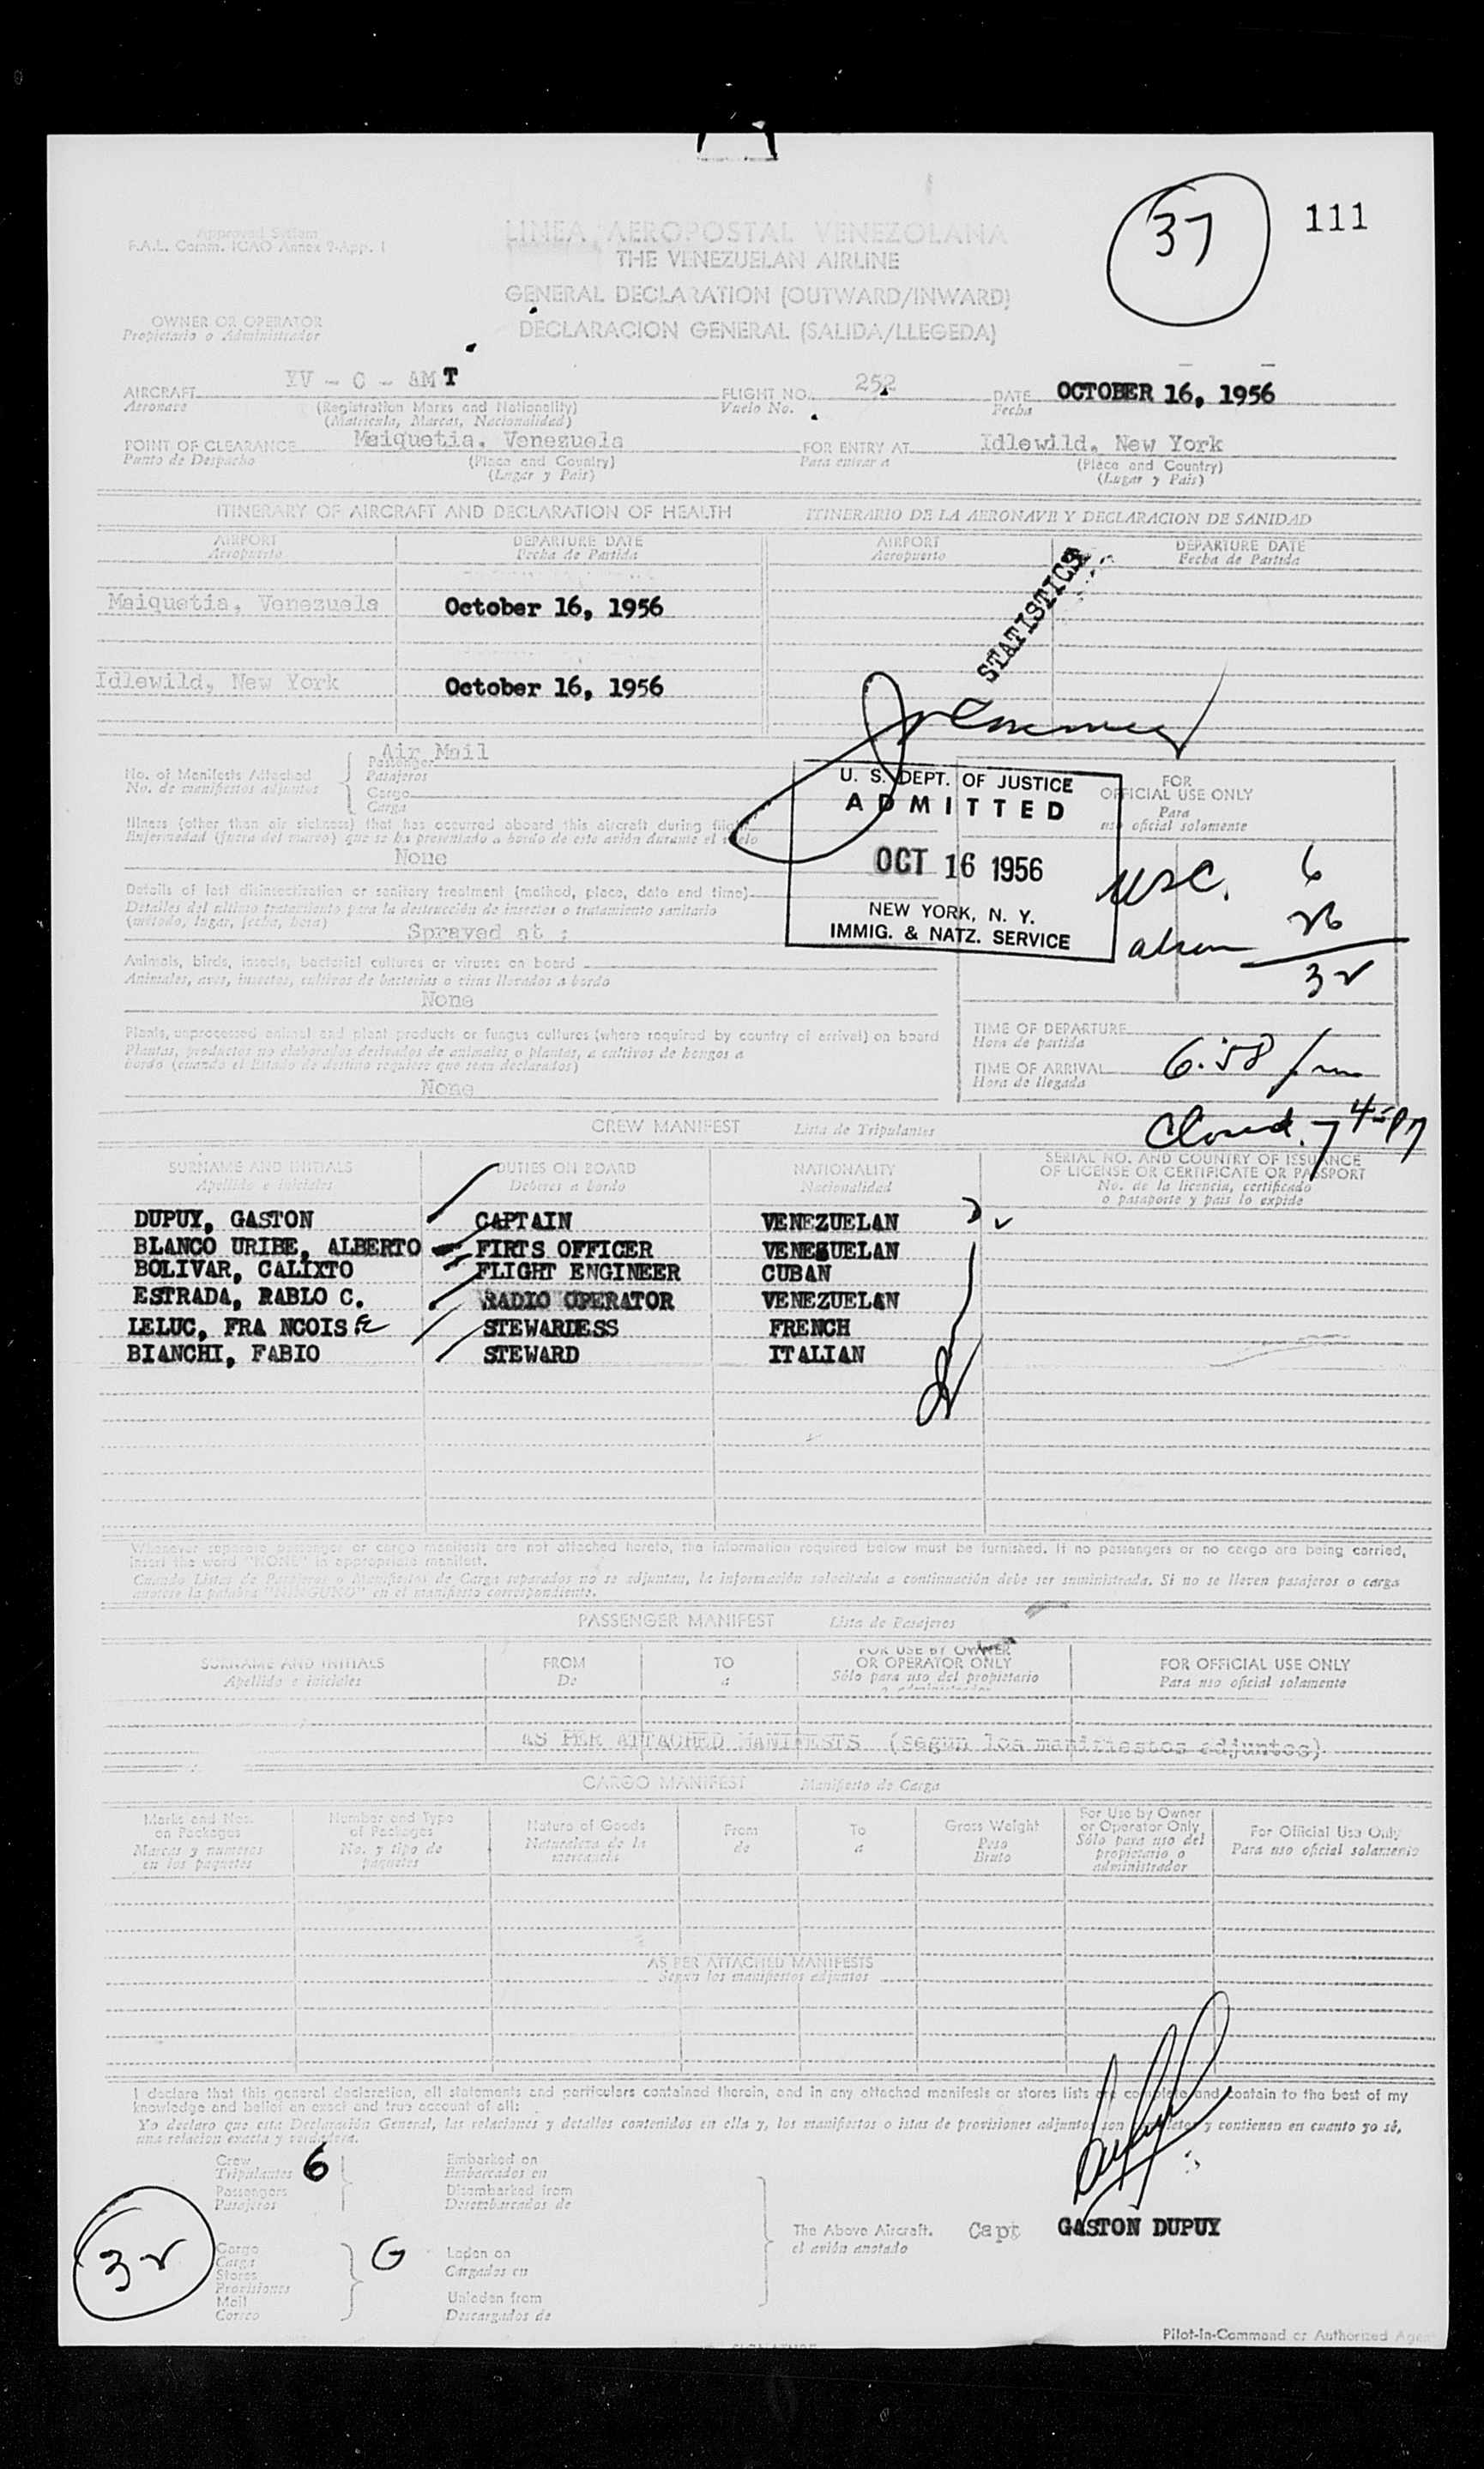 37
111
Approved System
F.A.L. Comm. ICAO Annex 9-App. I
LINEA AEROPOSTAL VENEZOLANA
THE VENEZUELAN AIRLINE
GENERAL DECLARATION (OUTWARD/INWARD)
DECLARACION GENERAL (SALIDA/LLEGEDA)
OWNER OR OPERATOR
Propietario o Administrador
AIRCRAFT YV - C - AMT FLIGHT NO. 252 DATE OCTOBER 16, 1956
Aeronave (Registration Marks and Nationality) Vuelo No. Fecha
(Matricula, Marcas, Nacionalidad)
POINT OF CLEARANCE Maiquetia, Venezuela FOR ENTRY AT Idlewild, New York
Punto de Despacho (Place and Country) Para entrar a (Place and Country)
(Lugar y Pais) (Lugar y Pais)
ITINERARY OF AIRCRAFT AND DECLARATION OF HEALTH ITINERARIO DE LA AERONAVE Y DECLARACION DE SANIDAD
AIRPORT DEPARTURE DATE AIRPORT DEPARTURE DATE
Aeropuerto Fecha de Partida Aeropuerto Fecha de Partida
STATISTICS
Maiquetia, Venezuela October 16, 1956
Idlewild, New York October 16, 1956
Air Mail
No. of Manifests Attached Passenger
No. de manifiestos adjuntos Pasajeros
Cargo
Carga
U. S. DEPT. OF JUSTICE
ADMITTED
OCT 16 1956
NEW YORK, N. Y.
IMMIG. & NATZ. SERVICE
FOR
OFFICIAL USE ONLY
Para
uso oficial solamente
usc. 6
alien 26
32
Illness (other than air sickness) that has occurred aboard this aircraft during flight
Enfermedad (fuera del mareo) que se ha presentado a bordo de este avión durante el vuelo
None
Details of last disinsectization or sanitary treatment (method, place, date and time)
Detalles del ultimo tratamiento para la destrucción de insectos o tratamiento sanitario
(método, lugar, fecha, hora)
Sprayed at :
Animals, birds, insects, bacterial cultures or viruses on board
Animales, aves, insectos, cultivos de bacterias o virus llevados a bordo
None
Plants, unprocessed animal and plant products or fungus cultures (where required by country of arrival) on board
Plantas, productos no elaborados derivados de animales o plantas, a cultivos de hongos a
bordo (cuando el Estado de destino requiere que sean declarados)
None
TIME OF DEPARTURE
Hora de partida
TIME OF ARRIVAL 6:58 pm
Hora de llegada
Closed. 7 45 PM
CREW MANIFEST Lista de Tripulantes
SURNAME AND INITIALS DUTIES ON BOARD NATIONALITY SERIAL NO. AND COUNTRY OF ISSUANCE
Apellido e iniciales Deberes a bordo Nacionalidad OF LICENSE OR CERTIFICATE OR PASSPORT
No. de la licencia, certificado
o pasaporte y pais lo expide
DUPUY, GASTON CAPTAIN VENEZUELAN
BLANCO URIBE, ALBERTO FIRTS OFFICER VENEZUELAN
BOLIVAR, CALIXTO FLIGHT ENGINEER CUBAN
ESTRADA, RABLO C. RADIO OPERATOR VENEZUELAN
LELUC, FRA NCOISE STEWARDESS FRENCH
BIANCHI, FABIO STEWARD ITALIAN
Whenever separate passenger or cargo manifests are not attached hereto, the information required below must be furnished. If no passengers or no cargo are being carried,
insert the word "NONE" in appropriate manifest.
Cuando Listas de Pasajeros o Manifiestos de Carga separados no se adjuntan, la información solocitada a continuación debe ser suministrada. Si no se lleven pasajeros o carga
anótese la palabra "NINGUNO" en el manifiesto correspondiente.
PASSENGER MANIFEST Lista de Pasajeros
SURNAME AND INITIALS FROM TO FOR USE BY OWNER OR OPERATOR ONLY FOR OFFICIAL USE ONLY
Apellido e iniciales De a Sólo para uso del propietario o administrador Para uso oficial solamente
AS PER ATTACHED MANIFESTS (Segun los manifiestos adjuntos)
CARGO MANIFEST Manifiesto de Carga
Marks and Nos. on Packages Number and Type of Packages Nature of Goods From To Gross Weight For Use by Owner or Operator Only For Official Use Only
Marcas y numeros en los paquetes No. y tipo de paquetes Naturaleza de la mercancía de a Peso Bruto Sólo para uso del propietario o administrador Para uso oficial solamente
AS PER ATTACHED MANIFESTS
Segun los manifiestos adjuntos
I declare that this general declaration, all statements and particulars contained therein, and in any attached manifests or stores lists are complete and contain to the best of my
knowledge and belief an exact and true account of all:
Yo declaro que esta Declaración General, las relaciones y detalles contenidos en ella y, los manifiestos o istas de provisiones adjuntos son completos y contienen en cuanto yo sé,
una relación exacta y verdadera.
Crew 6 Embarked on
Tripulantes Embarcados en
Passengers Disembarked from
Pasajeros Desembarcados de
The Above Aircraft. Capt GASTON DUPUY
el avión anotado
32
Cargo G Laden on
Carga Cargados en
Stores
Provisiones
Mail Unladen from
Correo Descargados de
Pilot-in-Command or Authorized Agent